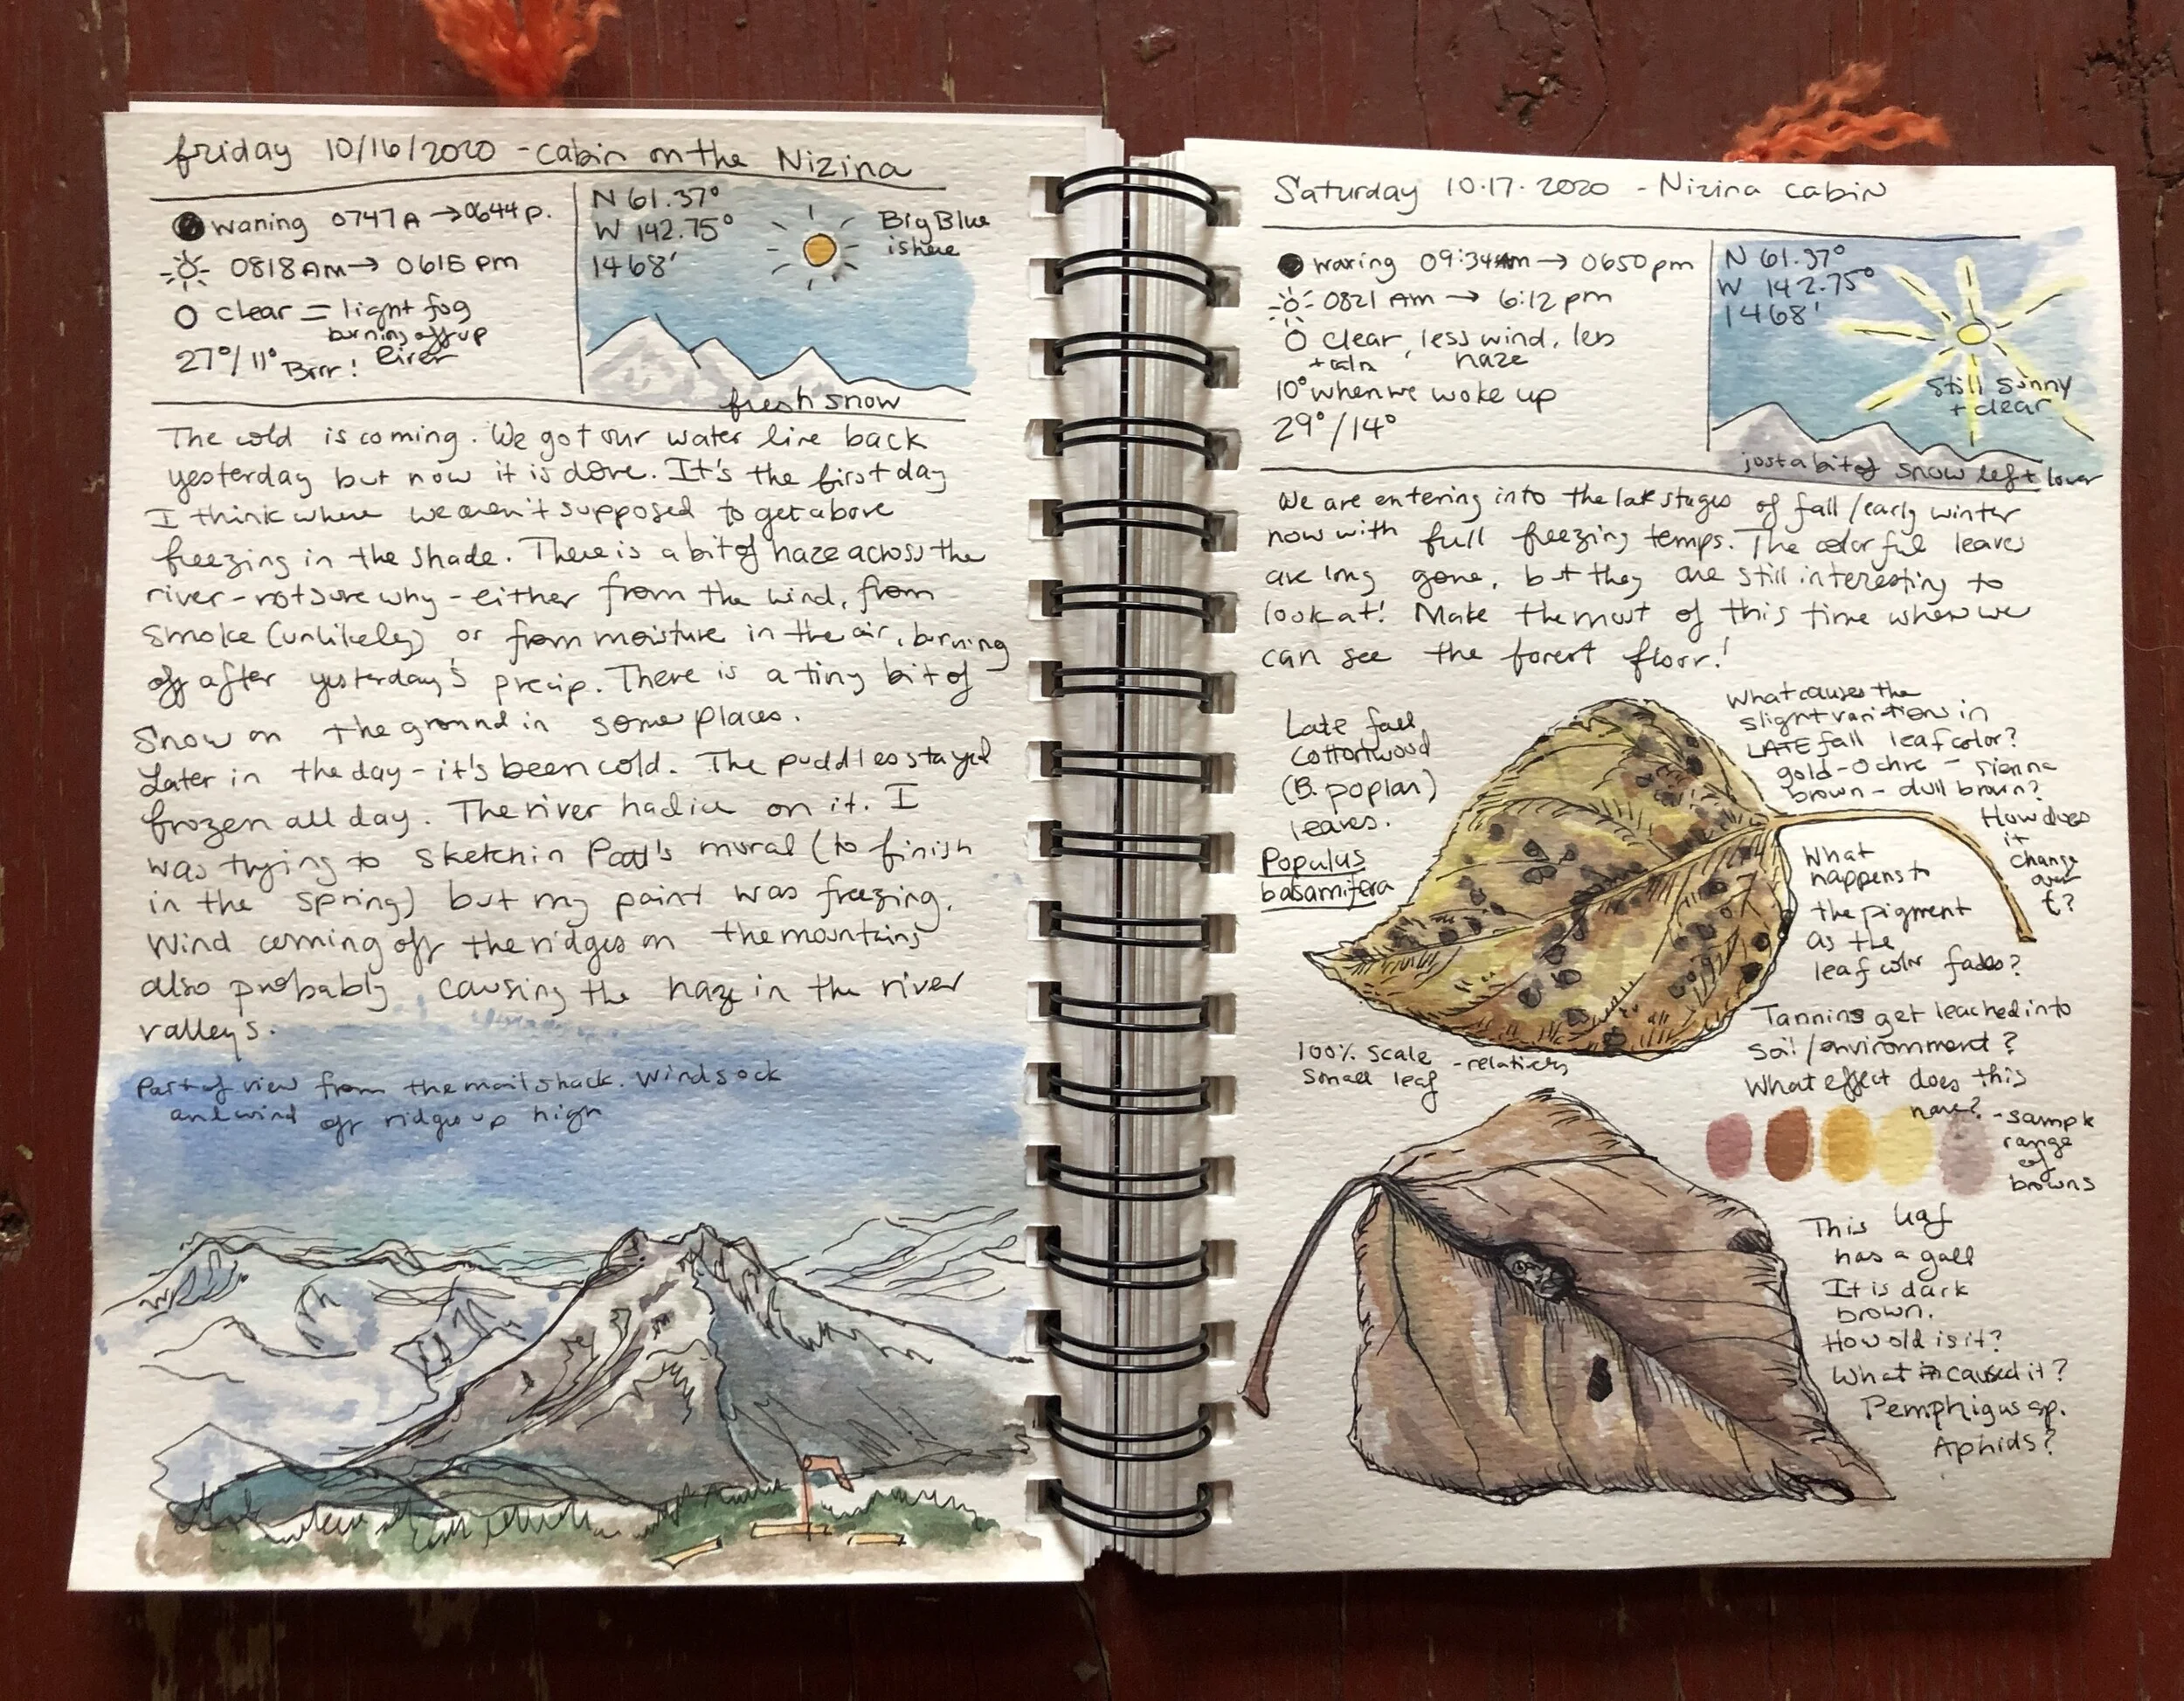 friday 10/16/2020 - cabin on the Nizina
waning 0747A → 0644p.
0818 Am → 0615 pm
clear = light fog
burning off up
River
27°/11° Brrr!
N 61.37°
W 142.75°
1468'
Big Blue
is here
fresh snow
The cold is coming. We got our water line back
yesterday but now it is done. It's the first day
I think where we aren't supposed to get above
freezing in the shade. There is a bit of haze across the
river - not sure why - either from the wind, from
smoke (unlikely) or from moisture in the air, burning
off after yesterday's precip. There is a tiny bit of
snow on the ground in some places.
Later in the day - it's been cold. The puddles stayed
frozen all day. The river had ice on it. I
was trying to sketch in Patt's mural (to finish
in the spring) but my paint was freezing.
Wind coming off the ridges on the mountains
also probably causing the haze in the river
valleys.
Part of view from the mail shack. Windsock
and wind off ridges up high
Saturday 10.17.2020 - Nizina cabin
waxing 09:34 Am → 0650 pm
0821 Am → 6:12 pm
clear, less wind, less
+ calm haze
10° when we woke up
29°/14°
N 61.37°
W 142.75°
1468'
Still sunny
+ clear
just a bit of snow left lower
We are entering into the late stages of fall/early winter
now with full freezing temps. The colorful leaves
are long gone, but they are still interesting to
look at! Make the most of this time when we
can see the forest floor!
Late fall
Cottonwood
(B. poplar)
leaves.
Populus
balsamifera
What causes the
slight variation in
LATE fall leaf color?
gold - ochre - sienna
brown - dull brown?
How does
it
change
over
t?
What
happens to
the pigment
as the
leaf color fades?
Tannins get leached into
soil/environment?
What effect does this
have?
100% scale - relatively
small leaf
- sample
range
of
browns
This leaf
has a gall
It is dark
brown.
How old is it?
What caused it?
Pemphigus sp.
Aphids?